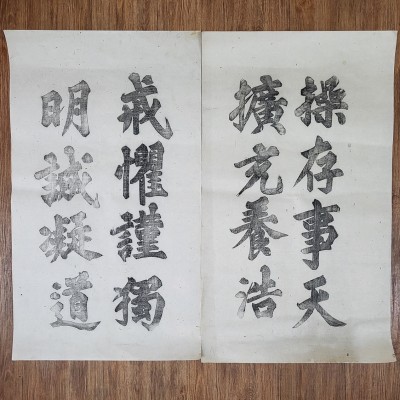 操存事天
擴充養浩
戒懼謹獨
明誠凝道